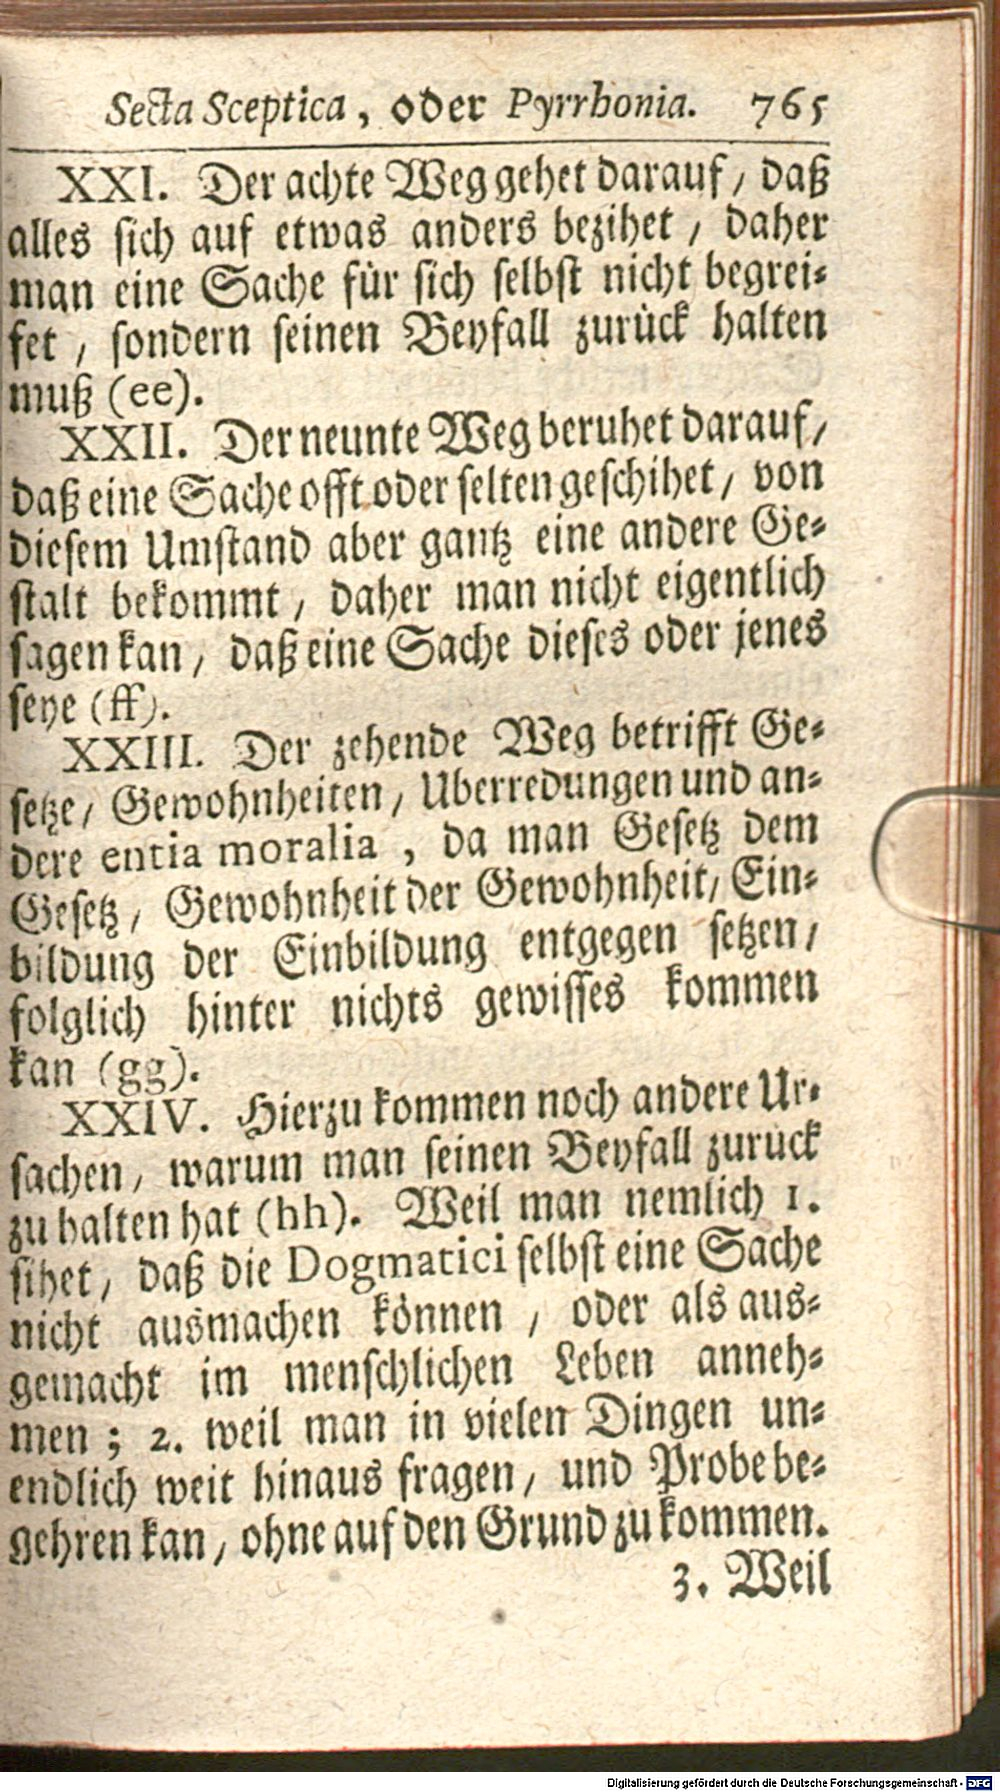 Secta Sceptica, oder Pyrrhonia. 765
XXI. Der achte Weg gehet darauf / daß
alles sich auf etwas anders bezihet / daher
man eine Sache für sich selbst nicht begrei-
fet / sondern seinen Beyfall zurück halten
muß (ee).
XXII. Der neunte Weg beruhet darauf /
daß eine Sache offt oder selten geschihet / von
diesem Umstand aber gantz eine andere Ge-
stalt bekommt / daher man nicht eigentlich
sagen kan / daß eine Sache dieses oder jenes
seye (ff).
XXIII. Der zehende Weg betrifft Ge-
setze / Gewohnheiten / Uberredungen und an-
dere entia moralia, da man Gesetz dem
Gesetz / Gewohnheit der Gewohnheit / Ein-
bildung der Einbildung entgegen setzen /
folglich hinter nichts gewisses kommen
kan (gg).
XXIV. Hierzu kommen noch andere Ur-
sachen / warum man seinen Beyfall zuruck
zu halten hat (hh). Weil man nemlich 1.
sihet / daß die Dogmatici selbst eine Sache
nicht ausmachen können / oder als aus-
gemacht im menschlichen Leben anneh-
men; 2. weil man in vielen Dingen un-
endlich weit hinaus fragen / und Probe be-
gehren kan / ohne auf den Grund zu kommen.
3. Weil
Digitalisierung gefördert durch die Deutsche Forschungsgemeinschaft - DFG